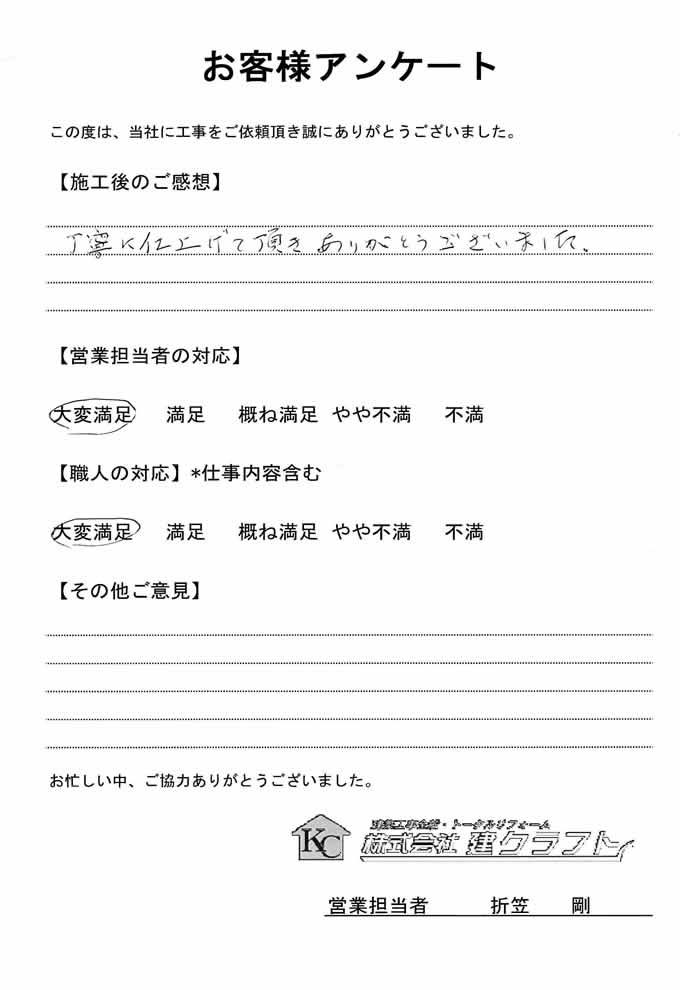 お客様アンケート
この度は、当社に工事をご依頼頂き誠にありがとうございました。
【施工後のご感想】
丁寧に仕上げて頂きありがとうございました。
【営業担当者の対応】
大変満足 満足 概ね満足 やや不満 不満
【職人の対応】*仕事内容含む
大変満足 満足 概ね満足 やや不満 不満
【その他ご意見】
お忙しい中、ご協力ありがとうございました。
KC
建築工事全般・トータルリフォーム
株式会社 建クラフト
営業担当者 折笠 剛